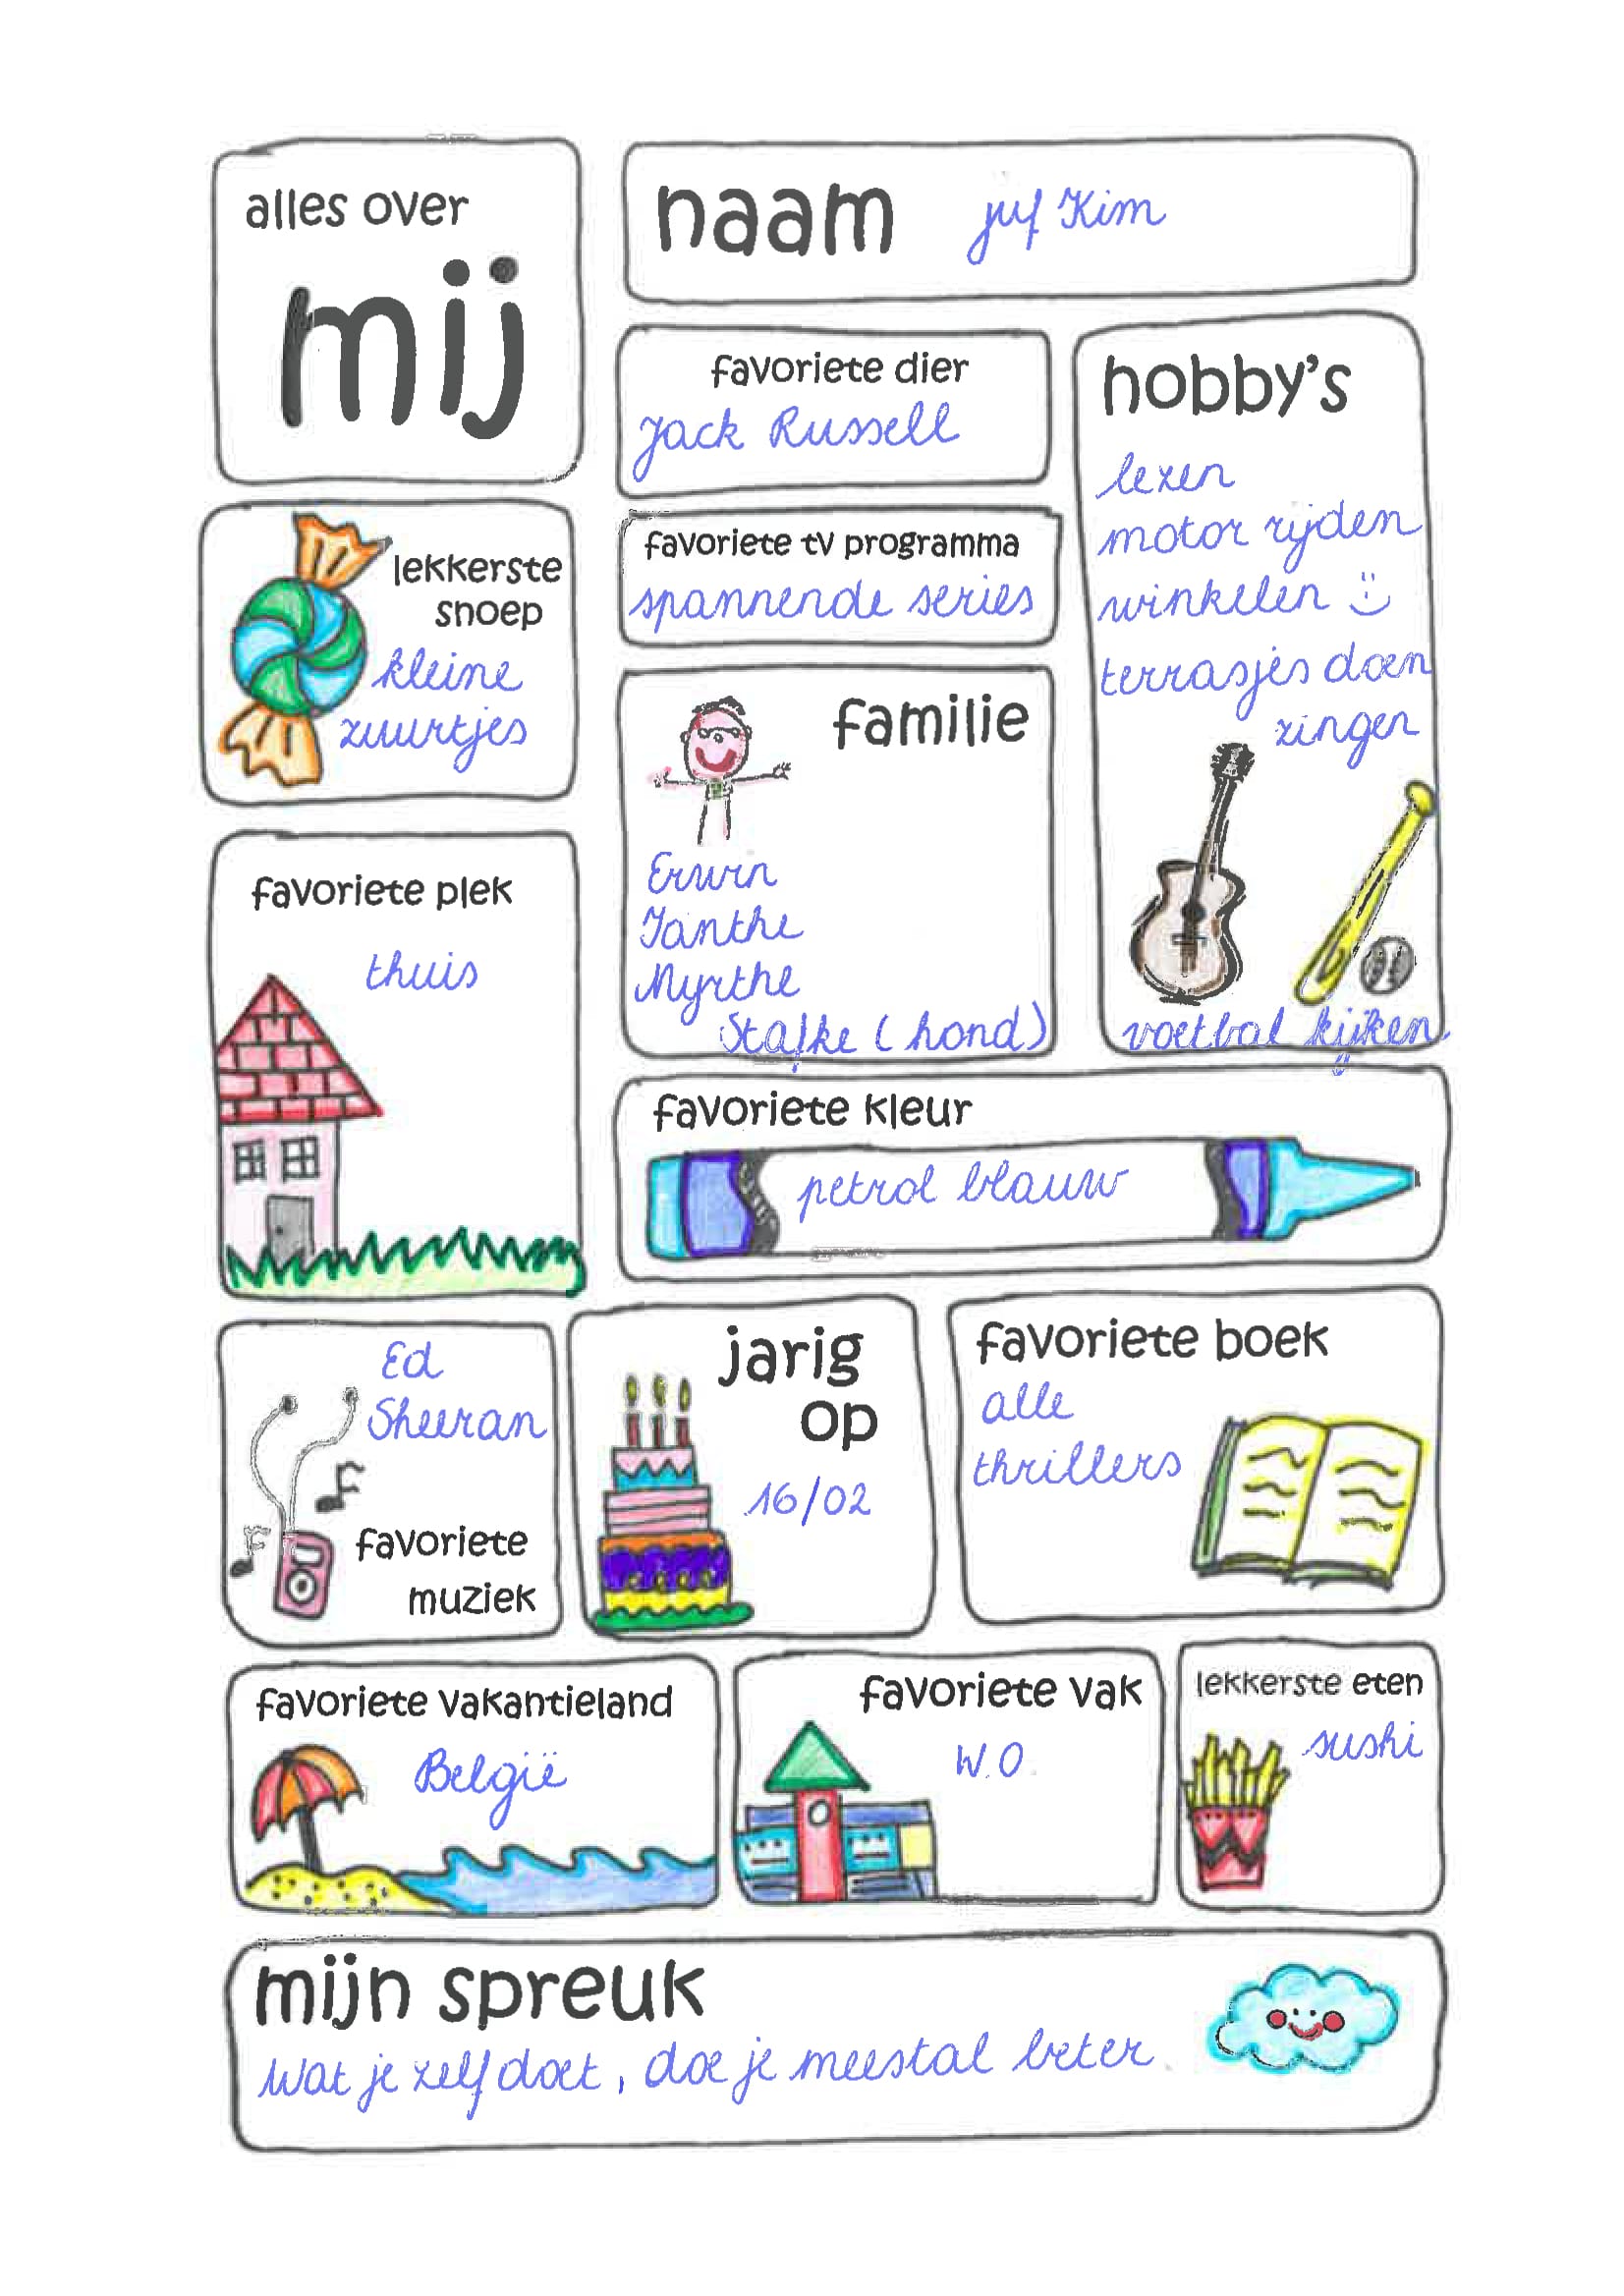 alles over
mij
naam juf Kim
favoriete dier
Jack Russell
hobby's
lezen
motor rijden
winkelen :)
terrasjes doen
zingen
voetbal kijken
lekkerste
snoep
kleine
zuurtjes
favoriete tv programma
spannende series
familie
Erwin
Janthe
Myrthe
Stafke (hond)
favoriete plek
thuis
favoriete kleur
petrol blauw
Ed
Sheeran
favoriete
muziek
jarig
op
16/02
favoriete boek
alle
thrillers
favoriete vakantieland
België
favoriete vak
W.O.
lekkerste eten
sushi
mijn spreuk
Wat je zelf doet, doe je meestal beter.